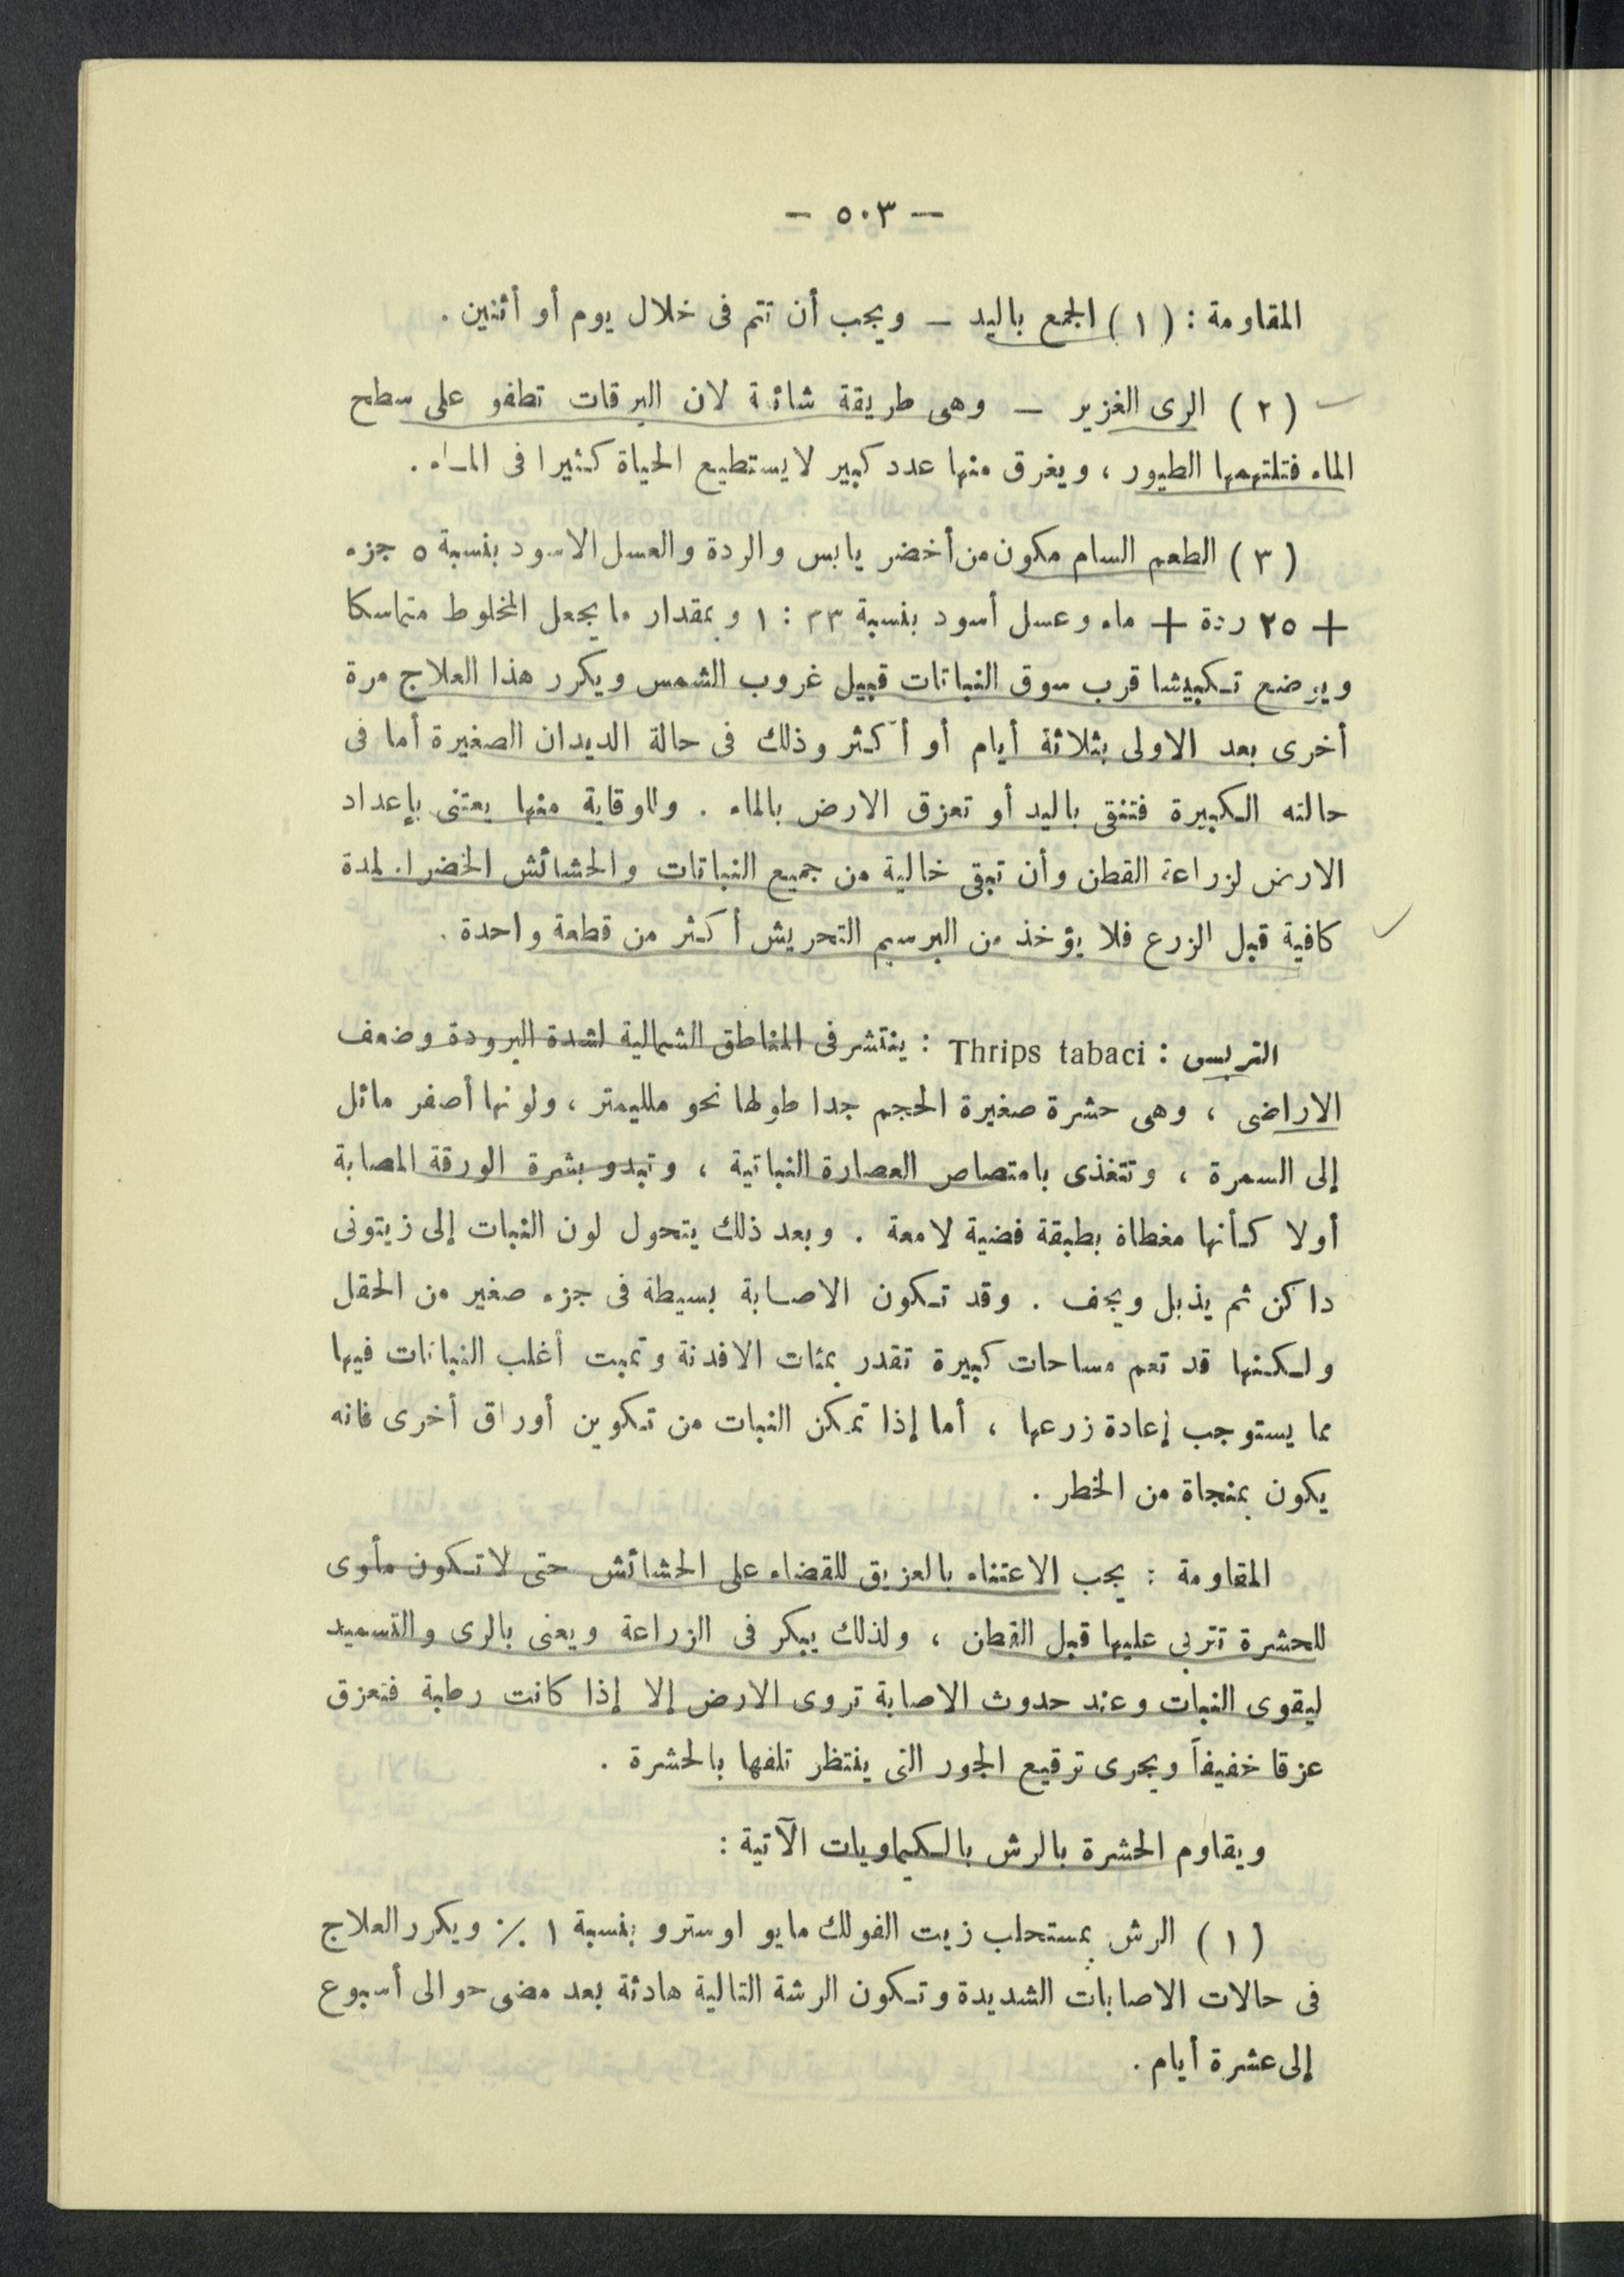 — ٥٠٣ —
المقاومة : (١) الجمع باليد — ويجب أن تتم فى خلال يوم أو أثنين .
(٢) الرى الغزير — وهى طريقة شائعة لان اليرقات تطفو على سطح
الماء فتلتهمها الطيور ، ويغرق منها عدد كبير لا يستطيع الحياة كثيرا فى الماء .
(٣) الطعم السام مكون من أخضر يابس والردة والعسل الاسود بنسبة ٥ جزء
+ ٢٥ ردة + ماء وعسل أسود بنسبة ٣٣ : ١ وبمقدار ما يجعل المخلوط متماسكا
ويوضع تكبيشا قرب سوق النباتات قبيل غروب الشمس ويكرر هذا العلاج مرة
أخرى بعد الاولى بثلاثة أيام أو أكثر وذلك فى حالة الديدان الصغيرة أما فى
حالته الكبيرة فتنقى باليد أو تعزق الارض بالماء . وللوقاية منها يعتنى بإعداد
الارض لزراعة القطن وأن تبقى خالية من جميع النباتات والحشائش الخضراء لمدة
كافية قبل الزرع فلا يؤخذ من البرسيم التحريش أكثر من قطعة واحدة .
التربس : Thrips tabaci : ينتشر فى المناطق الشمالية لشدة البرودة وضعف
الاراضى ، وهى حشرة صغيرة الحجم جدا طولها نحو ملليمتر ، ولونها أصفر مائل
إلى السمرة ، وتتغذى بامتصاص العصارة النباتية ، وتبدو بشرة الورقة المصابة
أولا كأنها مغطاة بطبقة فضية لامعة . وبعد ذلك يتحول لون النبات إلى زيتونى
داكن ثم يذبل ويجف . وقد تكون الاصابة بسيطة فى جزء صغير من الحقل
ولكنها قد تعم مساحات كبيرة تقدر بمئات الافدنة وتميت أغلب النباتات فيها
مما يستوجب إعادة زرعها ، أما إذا تمكن النبات من تكوين أوراق أخرى فانه
يكون بمنجاة من الخطر .
المقاومة : يجب الاعتناء بالعزيق للقضاء على الحشائش حتى لا تكون مأوى
للحشرة تتربى عليها قبل القطن ، ولذلك يبكر فى الزراعة ويعنى بالرى والتسميد
ليقوى النبات وعند حدوث الاصابة تروى الارض إلا إذا كانت رطبة فتعزق
عزقا خفيفاً ويجرى ترقيع الجور التى ينتظر تلفها بالحشرة .
ويقاوم الحشرة بالرش بالكيماويات الآتية :
(١) الرش بمستحلب زيت الفولك مايو اوسترو بنسبة ١ ٪ ويكرر العلاج
فى حالات الاصابات الشديدة وتكون الرشة التالية هادئة بعد مضى حوالى أسبوع
إلى عشرة أيام .